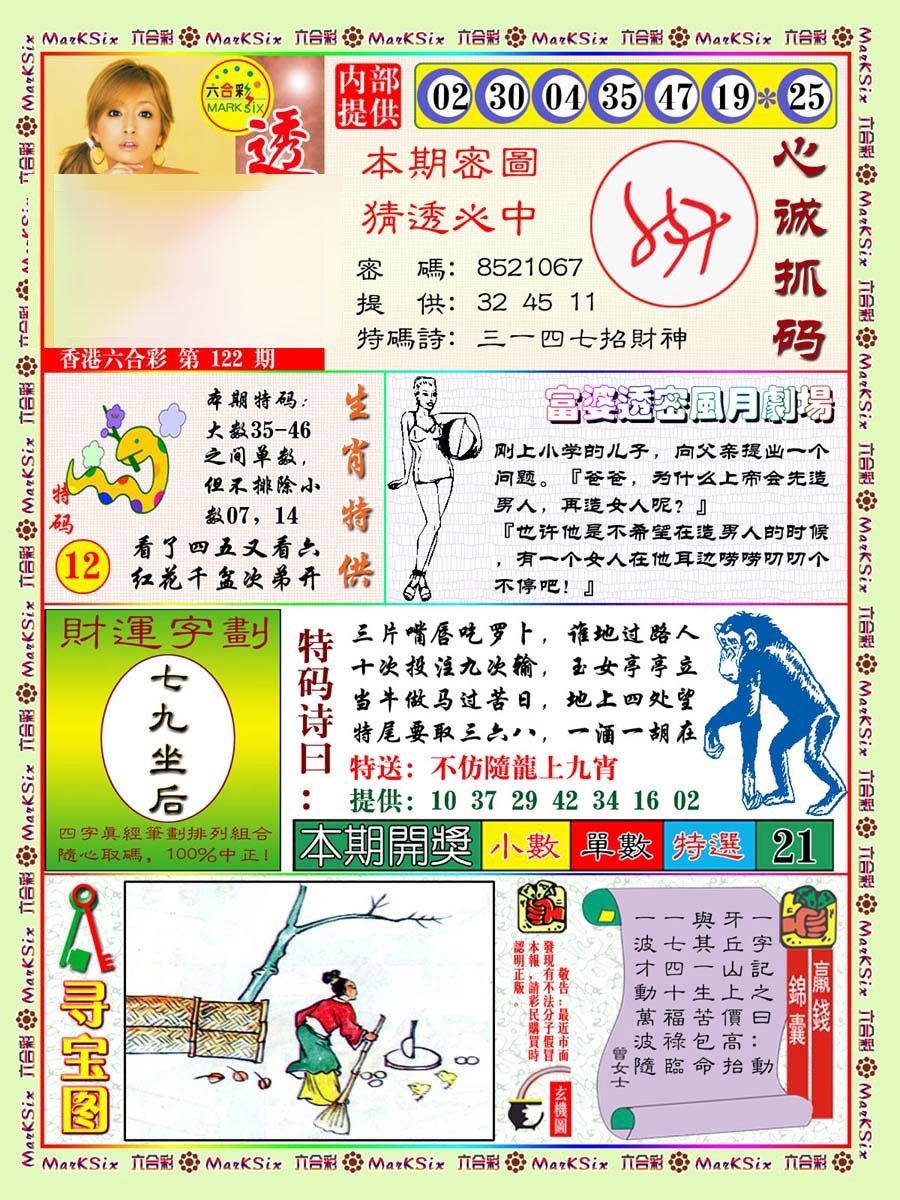 MarKSix 六合彩 MarKSix 六合彩 MarKSix 六合彩 MarKSix 六合彩 MarKSix 六合彩
六合彩
MARK SIX
透
内部
提供
02 30 04 35 47 19 * 25
本期密圖
猜透必中
密 碼: 8521067
提 供: 32 45 11
特碼詩: 三一四七招財神
心诚抓码
香港六合彩 第 122 期
本期特码:
大数35-46
之间单数,
但不排除小
数07, 14
看了四五又看六
红花千盆次弟开
特码
12
生肖特供
富婆透密風月劇場
刚上小学的儿子, 向父亲提出一个
问题。『爸爸, 为什么上帝会先造
男人, 再造女人呢? 』
『也许他是不希望在造男人的时候
, 有一个女人在他耳边唠唠叨叨个
不停吧! 』
財運字劃
七九坐后
四字真經筆劃排列組合
隨心取碼, 100%中正!
特码诗曰:
三片嘴唇吃罗卜, 谁地过路人
十次投注九次输, 玉女亭亭立
当牛做马过苦日, 地上四处望
特尾要取三六八, 一酒一胡在
特送: 不仿隨龍上九宵
提供: 10 37 29 42 34 16 02
本期開獎 小數 單數 特選 21
寻宝图
敬告:最近市面
發現有不法分子假冒
本報,請彩民購買時
認明正版。
玄機圖
贏錢
錦囊
一字記之曰:動
牙丘山上價高抬
與其一生苦包命
一七四十福祿臨
一波才動萬波隨
曾女士
MarKSix 六合彩 MarKSix 六合彩 MarKSix 六合彩 MarKSix 六合彩 MarKSix 六合彩